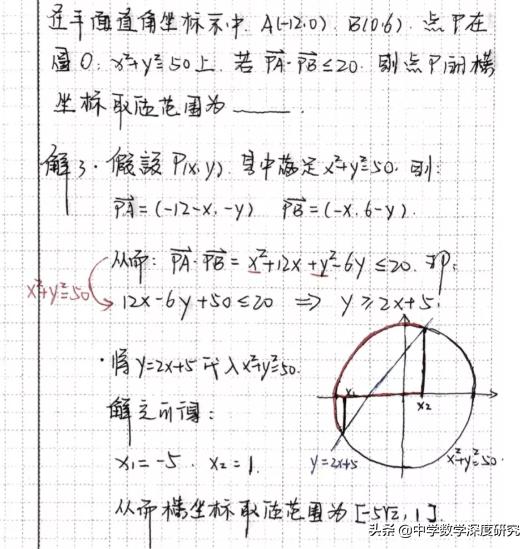 在平面直角坐标系中, A(-12,0), B(0,6), 点P在
圆O: x²+y²=50上, 若 PA·PB≤20, 则点P的横
坐标取值范围为 ____.
解3. 假設P(x,y), 其中满足x²+y²=50, 则:
PA=(-12-x,-y) PB=(-x,6-y).
从而: PA·PB=x²+12x+y²-6y≤20, 即:
x²+y²=50
12x-6y+50≤20 ⇒ y≥2x+5.
·将y=2x+5代入x²+y²=50.
解之可得:
x₁=-5, x₂=1.
x₁
x₂
y=2x+5
x²+y²=50.
从而横坐标取值范围为[-5√2,1].
头条 @中学数学深度研究